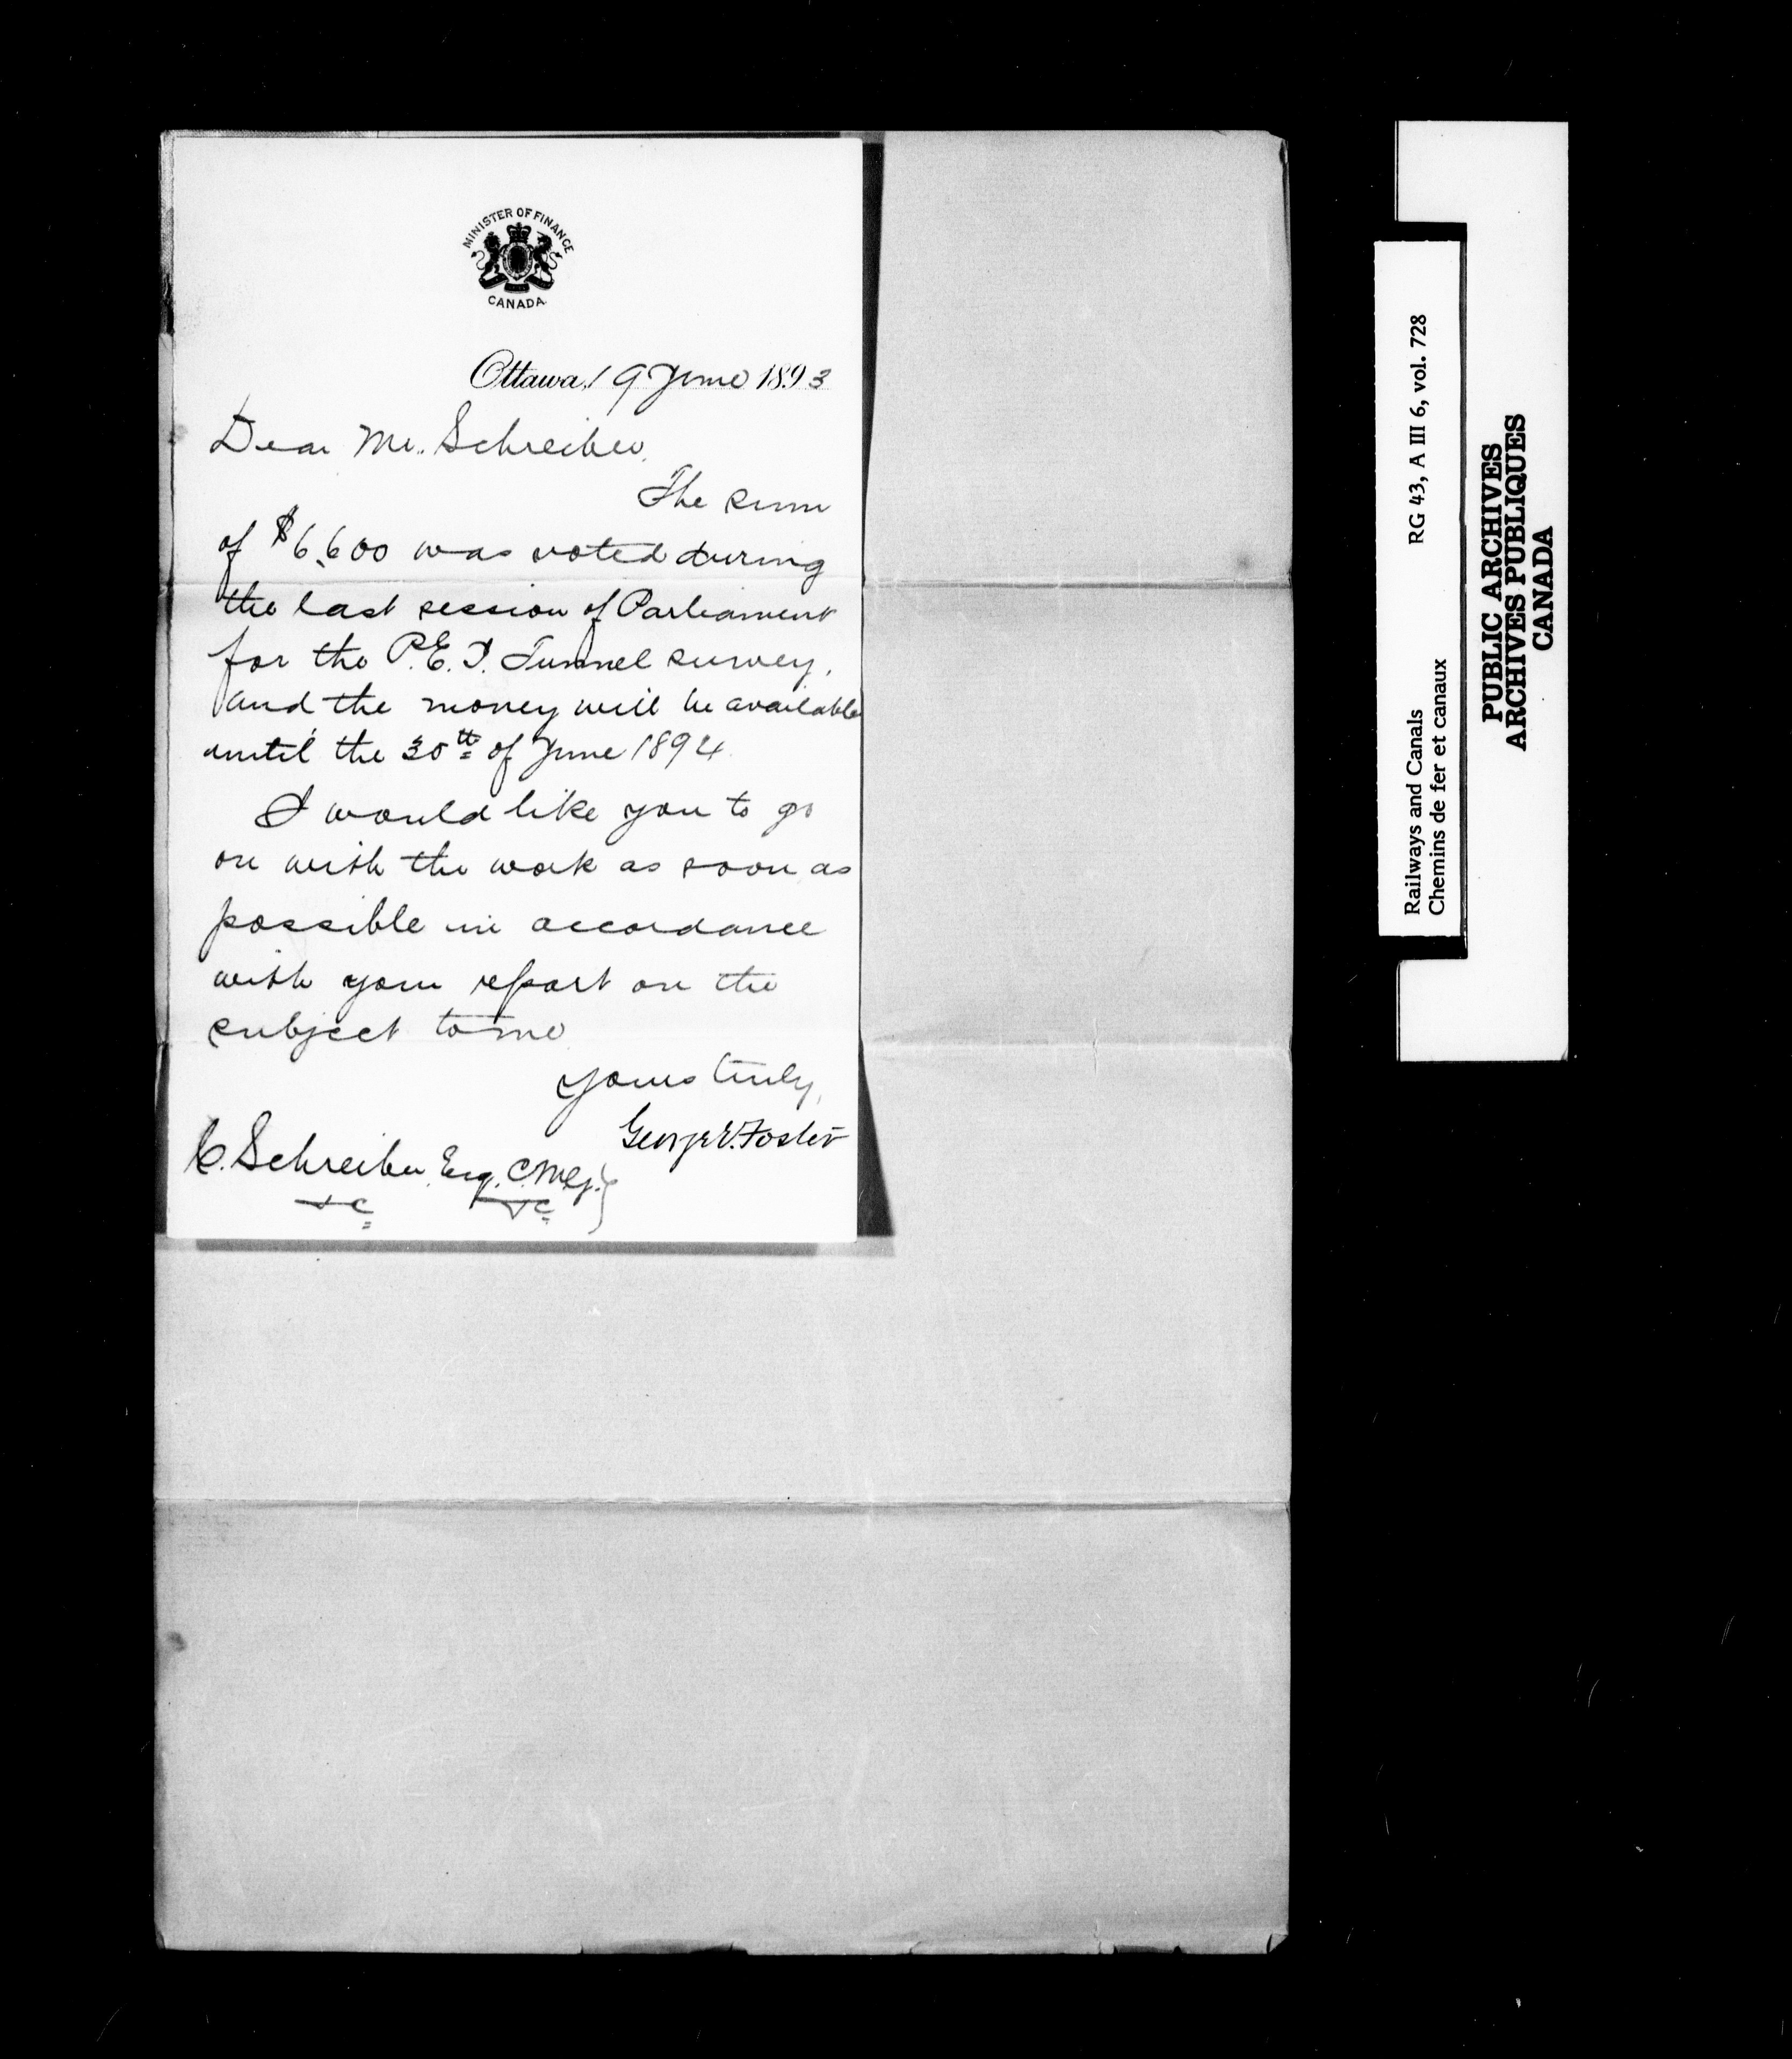 MINISTER OF FINANCE
CANADA
Ottawa, 19 June 1893
Dear Mr. Schreiber,
The sum
of $6,600 was voted during
the last session of Parliament
for the P.E.I. Tunnel survey,
and the money will be available
until the 30th of June 1894
I would like you to go
on with the work as soon as
possible in accordance
with your report on the
subject to me
Yours truly,
George E. Foster
C. Schreiber, Esq. C.M.G.
&c &c
Railways and Canals RG 43, A III 6, vol. 728
Chemins de fer et canaux
PUBLIC ARCHIVES
ARCHIVES PUBLIQUES
CANADA